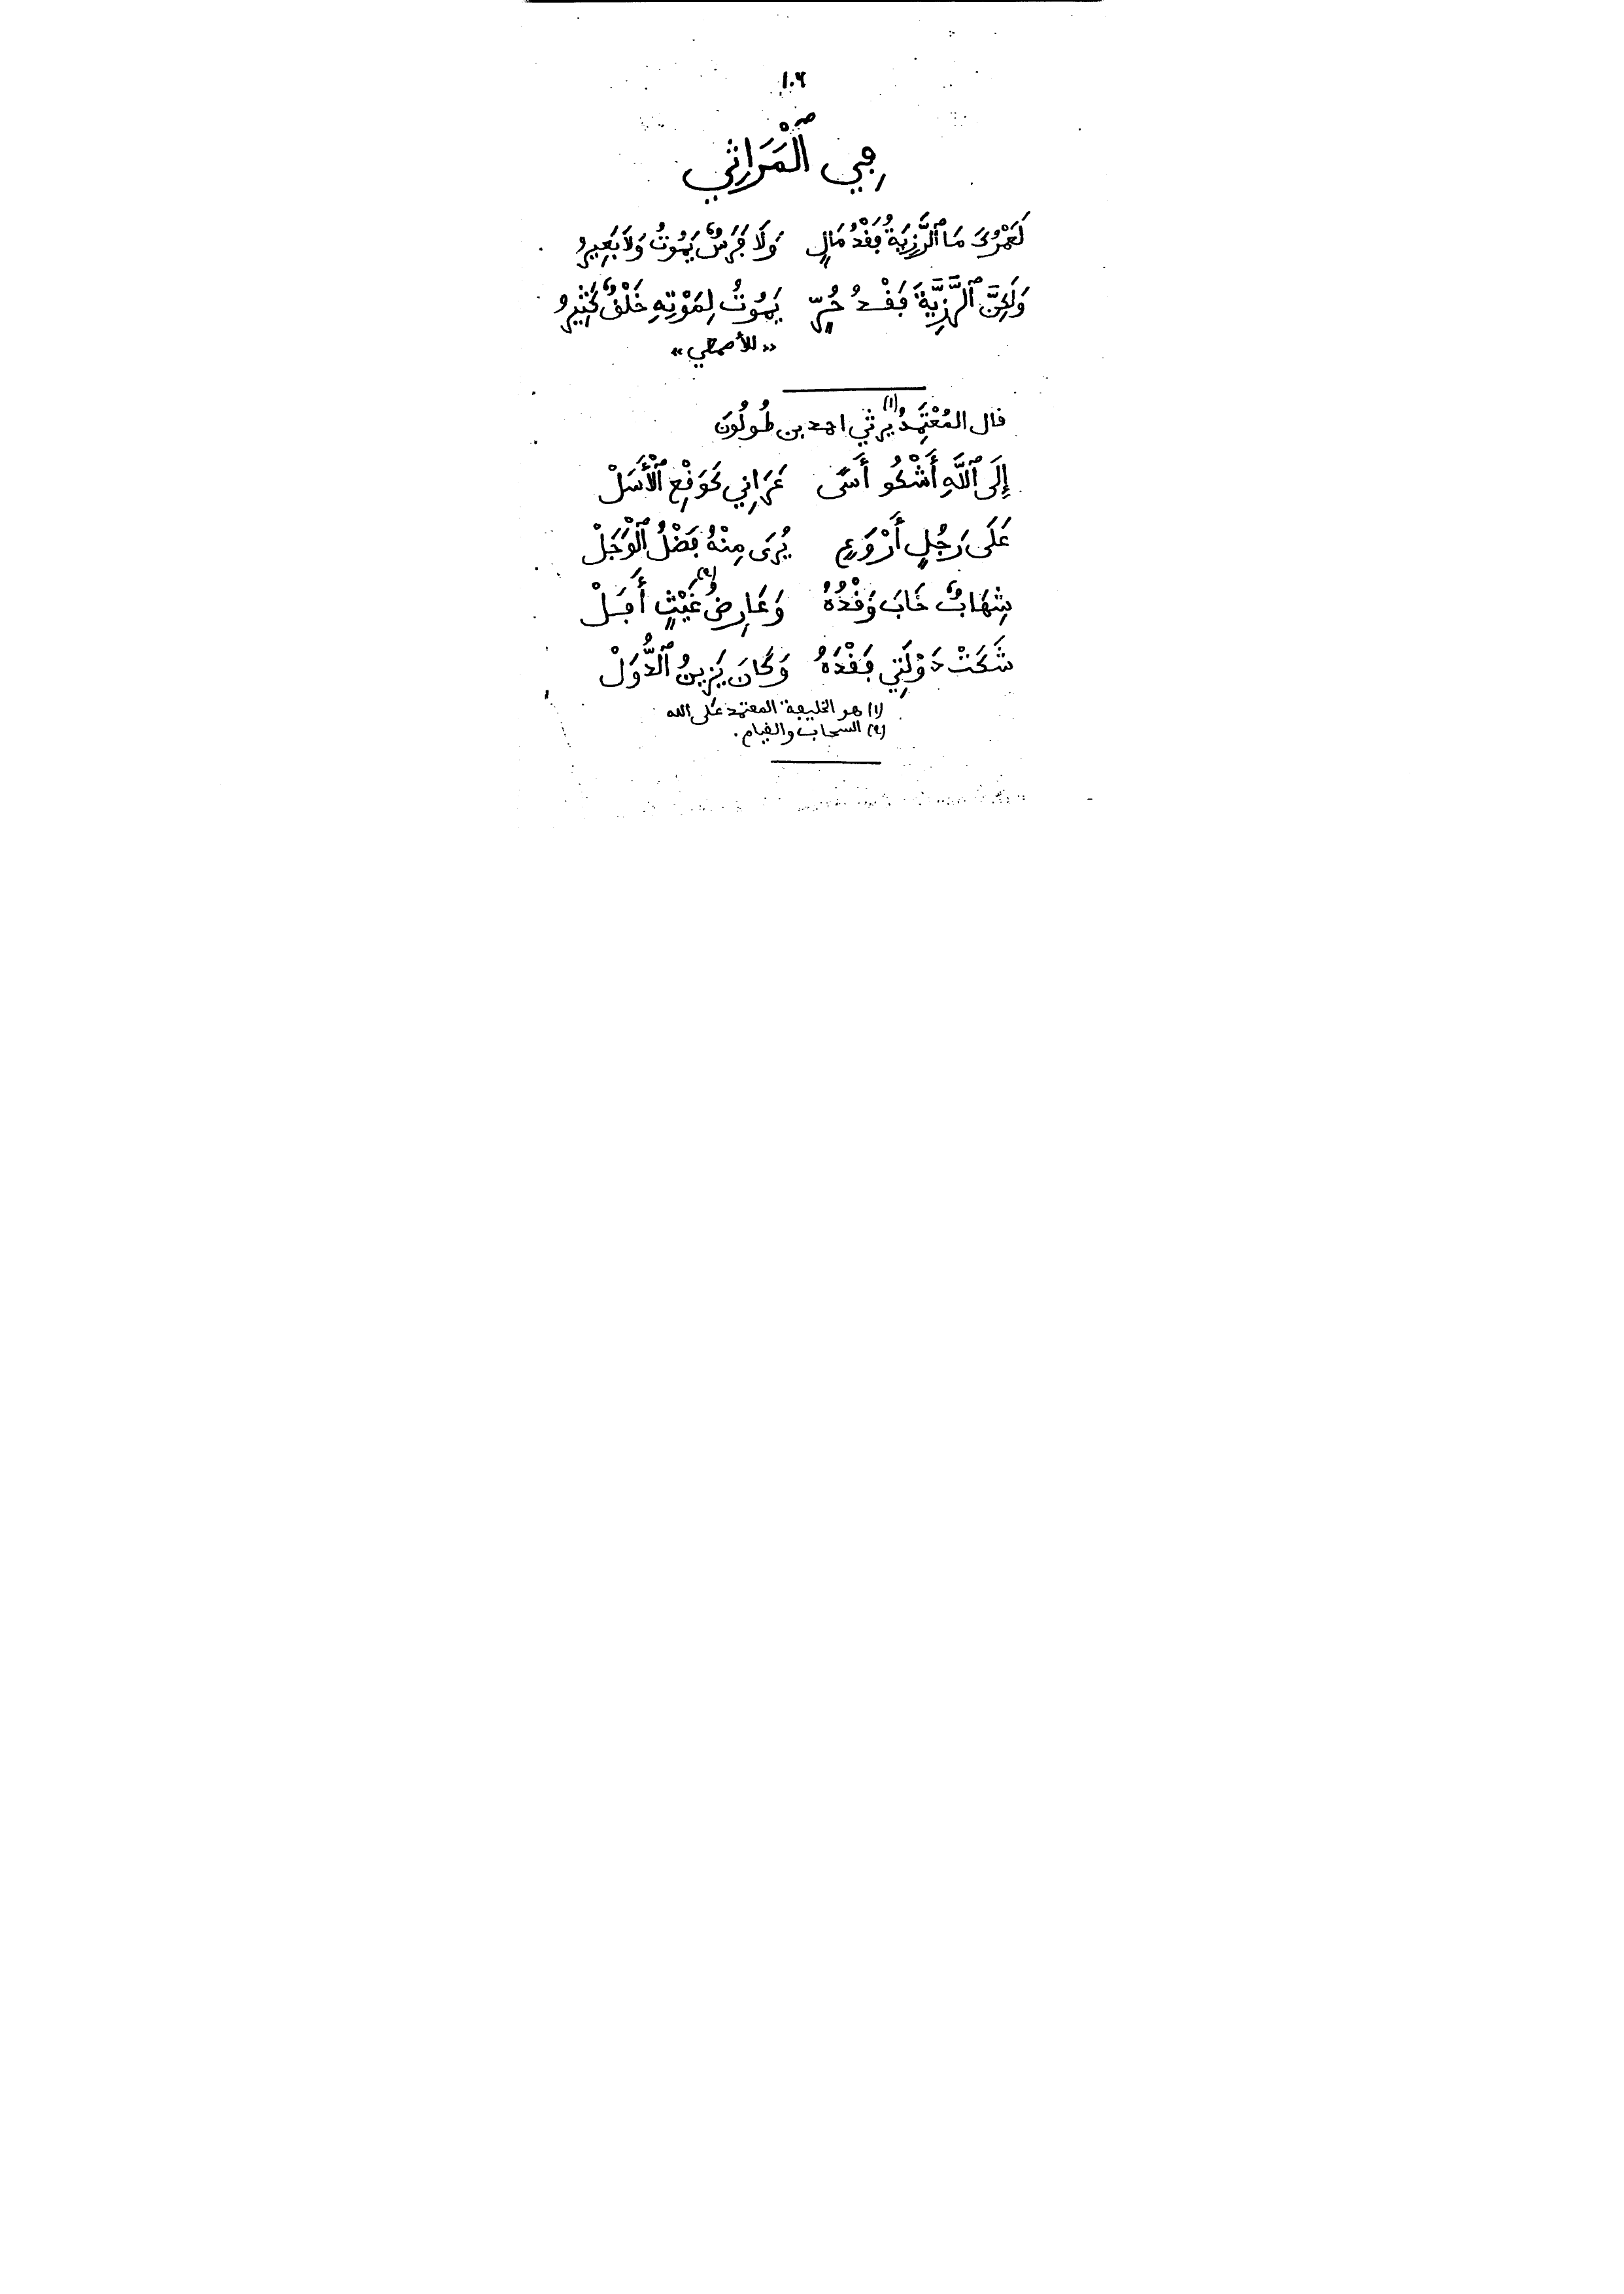 ١٠٦
فِي ٱلْمَرَاثِي
لَعَمْرُكَ مَا ٱلرَّزِيَةُ فَقْدُ مَالٍ    وَلَا فَرَسٌ يَمُوتُ وَلَا بَعِيرُ
وَلَكِنَّ ٱلرَّزِيَّةَ فَقْدُ حُرٍّ    يَمُوتُ لِمَوْتِهِ خَلْقٌ كَثِيرُ
«للأصمعي»
قال المُعْتَمِدُ (١) يرثي احمد بن طُولُونَ
إِلَى ٱللَّهِ أَشْكُو أَسًى    عَرَانِي كَوَقْعِ ٱلْأَسَلْ
عَلَى رَجُلٍ أَرْوَعٍ    يُرَى مِنْهُ فَضْلُ ٱلْوَجَلْ
شِهَابٌ خَابَ وَقْدُهُ    وَعَارِضُ (٢) غَيْثٍ أَفَلْ
شَكَتْ دَوْلَتِي فَقْدَهُ    وَكَانَ يَزِينُ ٱلدُّوَلْ
(١) هو الخليفة المعتمد على الله
(٢) السحاب والغيام.